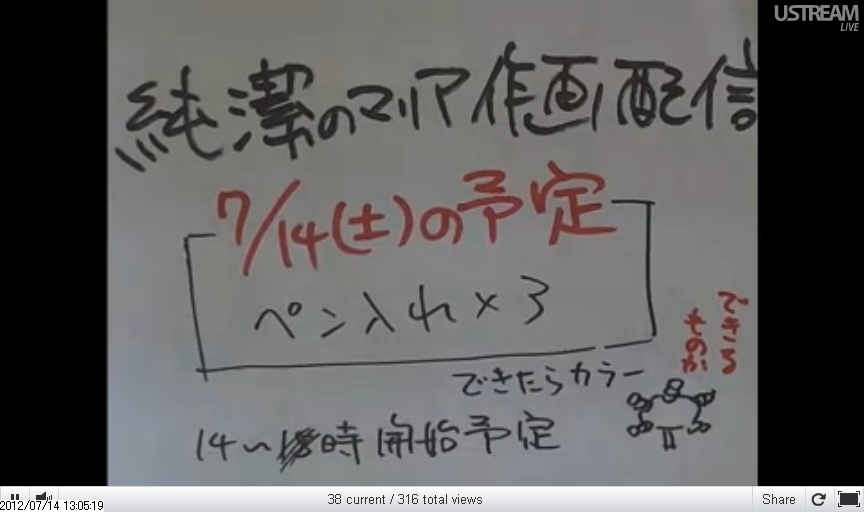 USTREAM
LIVE
純潔のマリア作画配信
7/14(土)の予定
ペン入れ×3
できたらカラー
できる
ものか
14〜 時開始予定
38 current / 316 total views
Share
2012/07/14 13:05:19